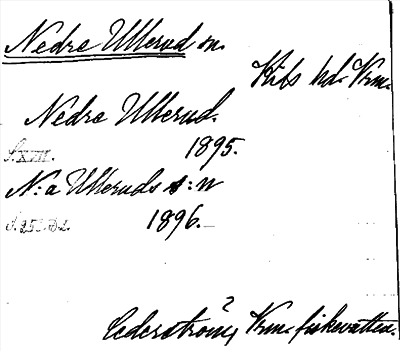 Nedre Ullerud sn.
Kils hd. Vrm.
Nedre Ullerud.
S. XVII. 1895.
N:a Ulleruds s:n
S. 25. 1896.
?
Cederström, Vrm. fiskevatten.